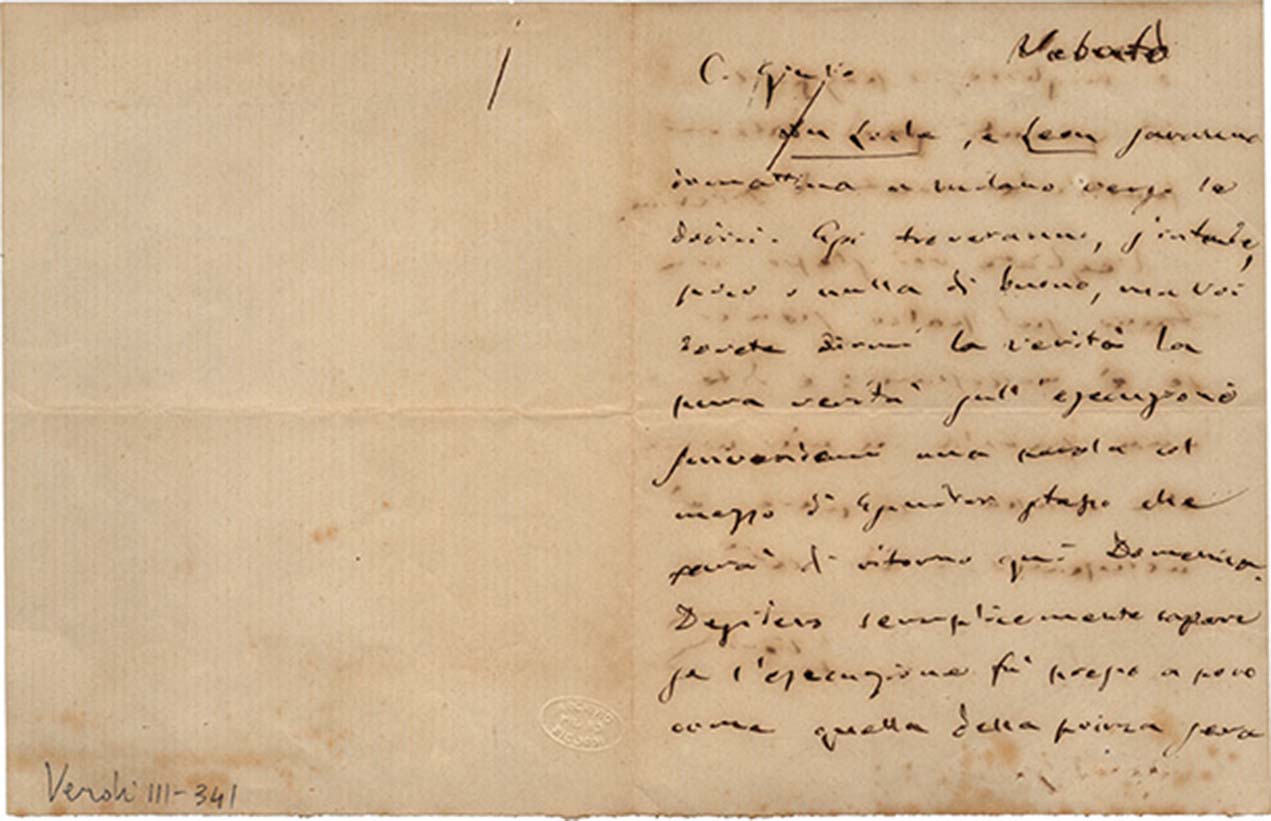 Sabato
C. Giulio
Du Locle, e Leon saranno
domattina a Milano verso le
dodici. Essi troveranno, s'intende,
poco o nulla di buono, ma voi
dovete dirmi la verità la
pura verità sull'esecuzione
scrivendomi una parola col
mezzo di stesso che
sarà di ritorno quì Domenica.
Desidero semplicemente sapere
se l'esecuzione fù presso a poco
come quella della prima sera
Verdi III-341